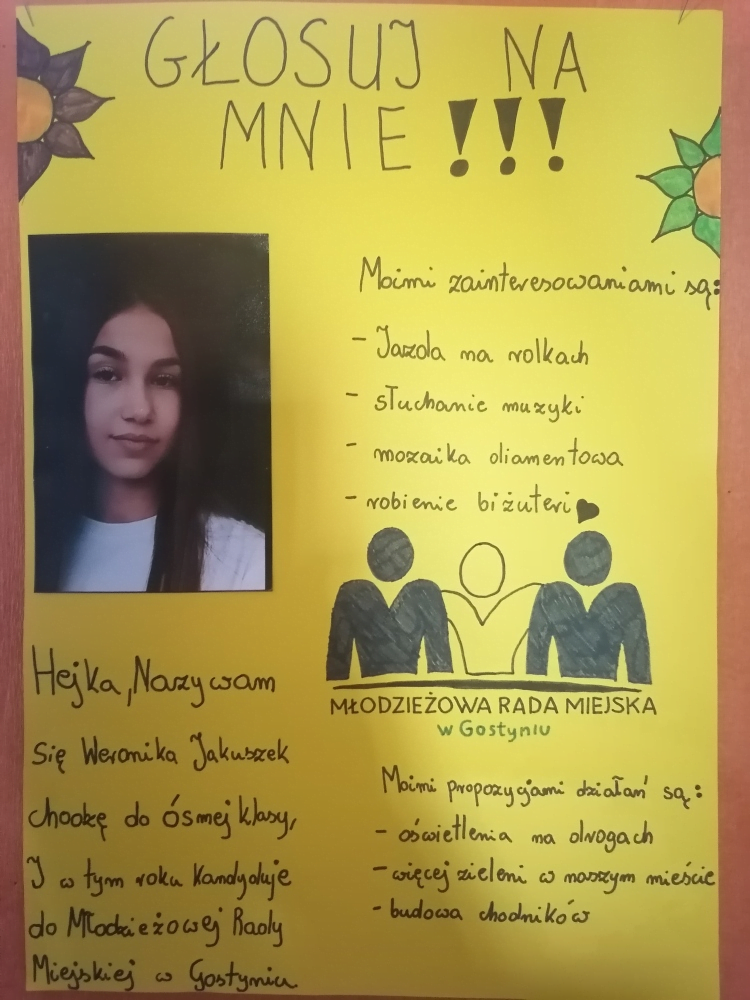 GŁOSUJ NA
MNIE !!!
Moimi zainteresowaniami są:
- Jazda na rolkach
- słuchanie muzyki
- mozaika diamentowa
- robienie biżuteri
MŁODZIEŻOWA RADA MIEJSKA
w Gostyniu
Hejka, Nazywam
się Weronika Jakuszek
chodzę do ósmej klasy,
I w tym roku kandyduje
do Młodzieżowej Rady
Miejskiej w Gostyniu
Moimi propozycjami działań są:
- oświetlenia na drogach
- więcej zieleni w naszym mieście
- budowa chodników